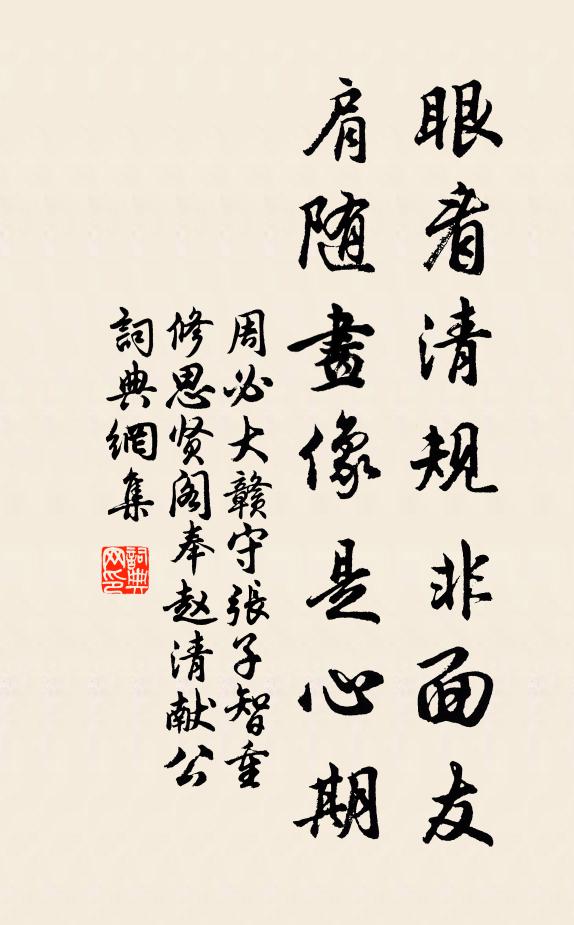 眼看清规非面友
肩随畫像是心期
周必大贛守張子智重
修思贤阁奉赵清献公
詞典網集
詞典网印